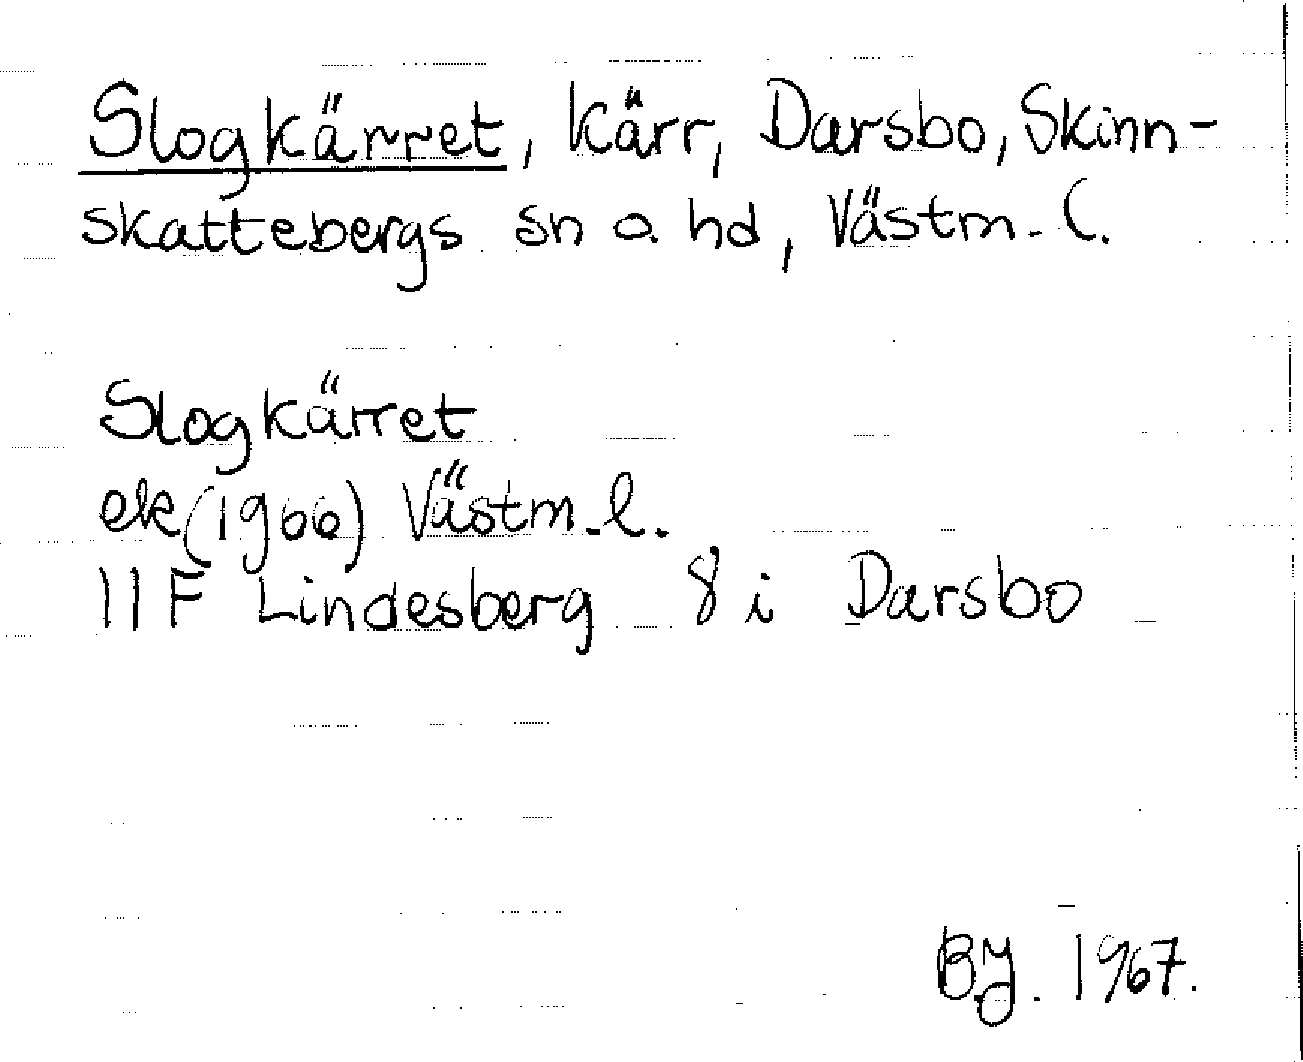 Slogkärret, kärr, Darsbo, Skinn-
skattebergs sn o. hd, Västm. l.
Slogkärret
ek (1966) Västm. l.
11F Lindesberg 8 i Darsbo
BJ. 1967.